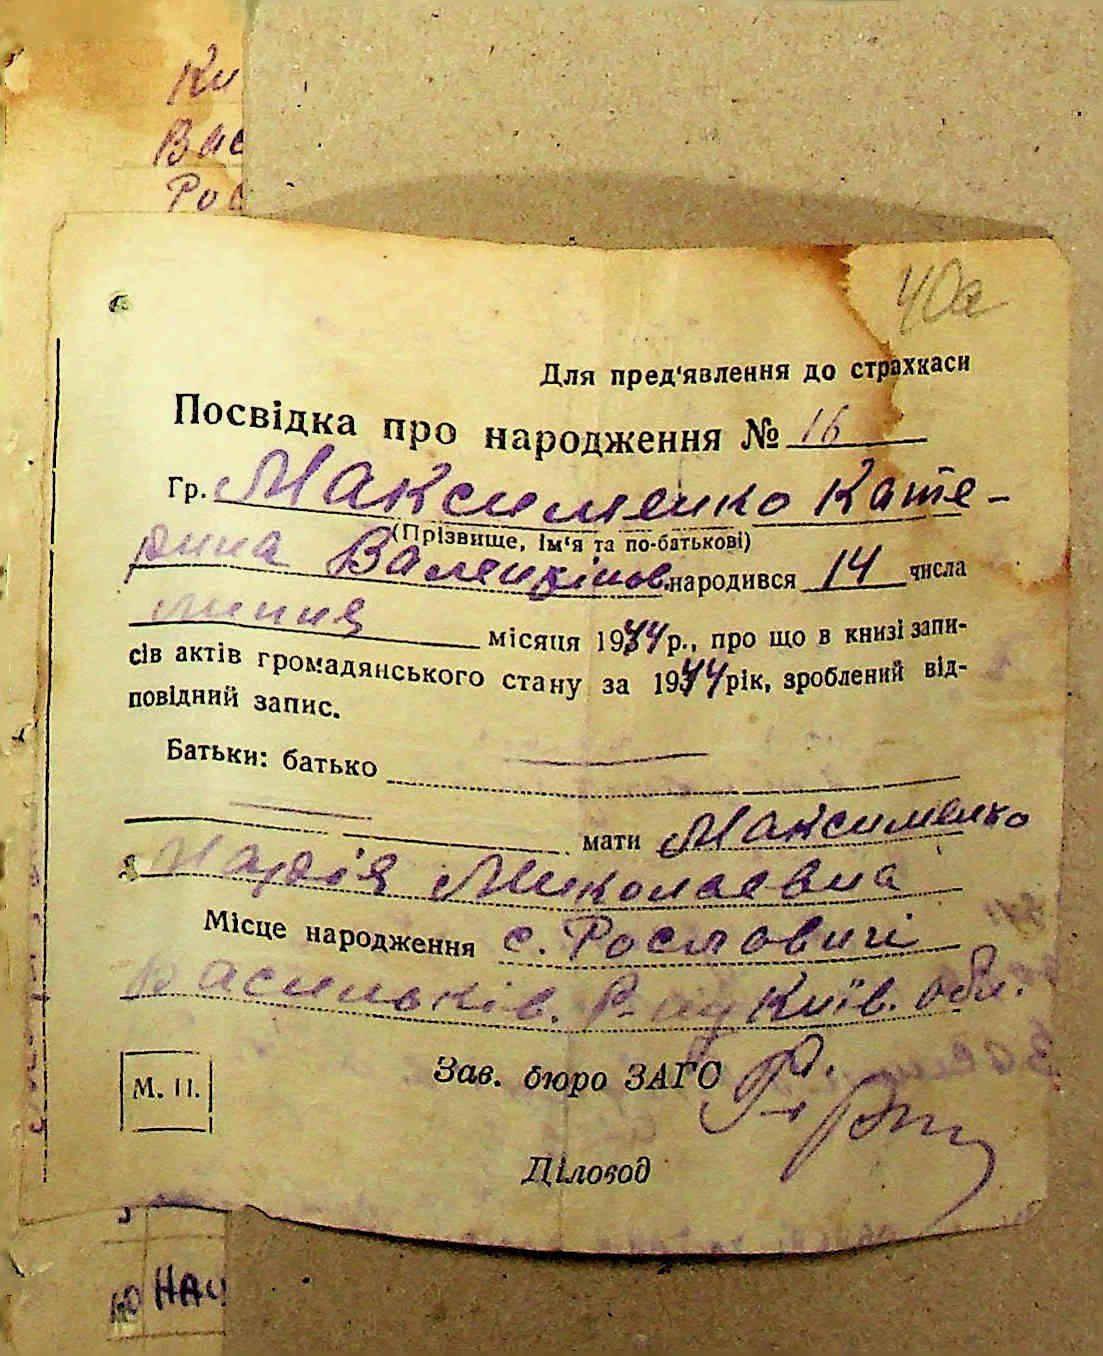 Ки
Вас
Рос
40а
Для пред'явлення до страхкаси
Посвідка про народження № 16
Гр. Максименко Кате-
(Прізвище, ім'я та по-батькові)
рина Валентінов. народився 14 числа
липня місяця 1944 р., про що в книзі запи-
сів актів громадянського стану за 1944 рік, зроблений від-
повідний запис.
Батьки: батько
мати Максименко
Надія Миколаевна
Місце народження с. Рославичі
Васильків. Р-ну Київ. обл.
М. П.
Зав. бюро ЗАГС
Діловод